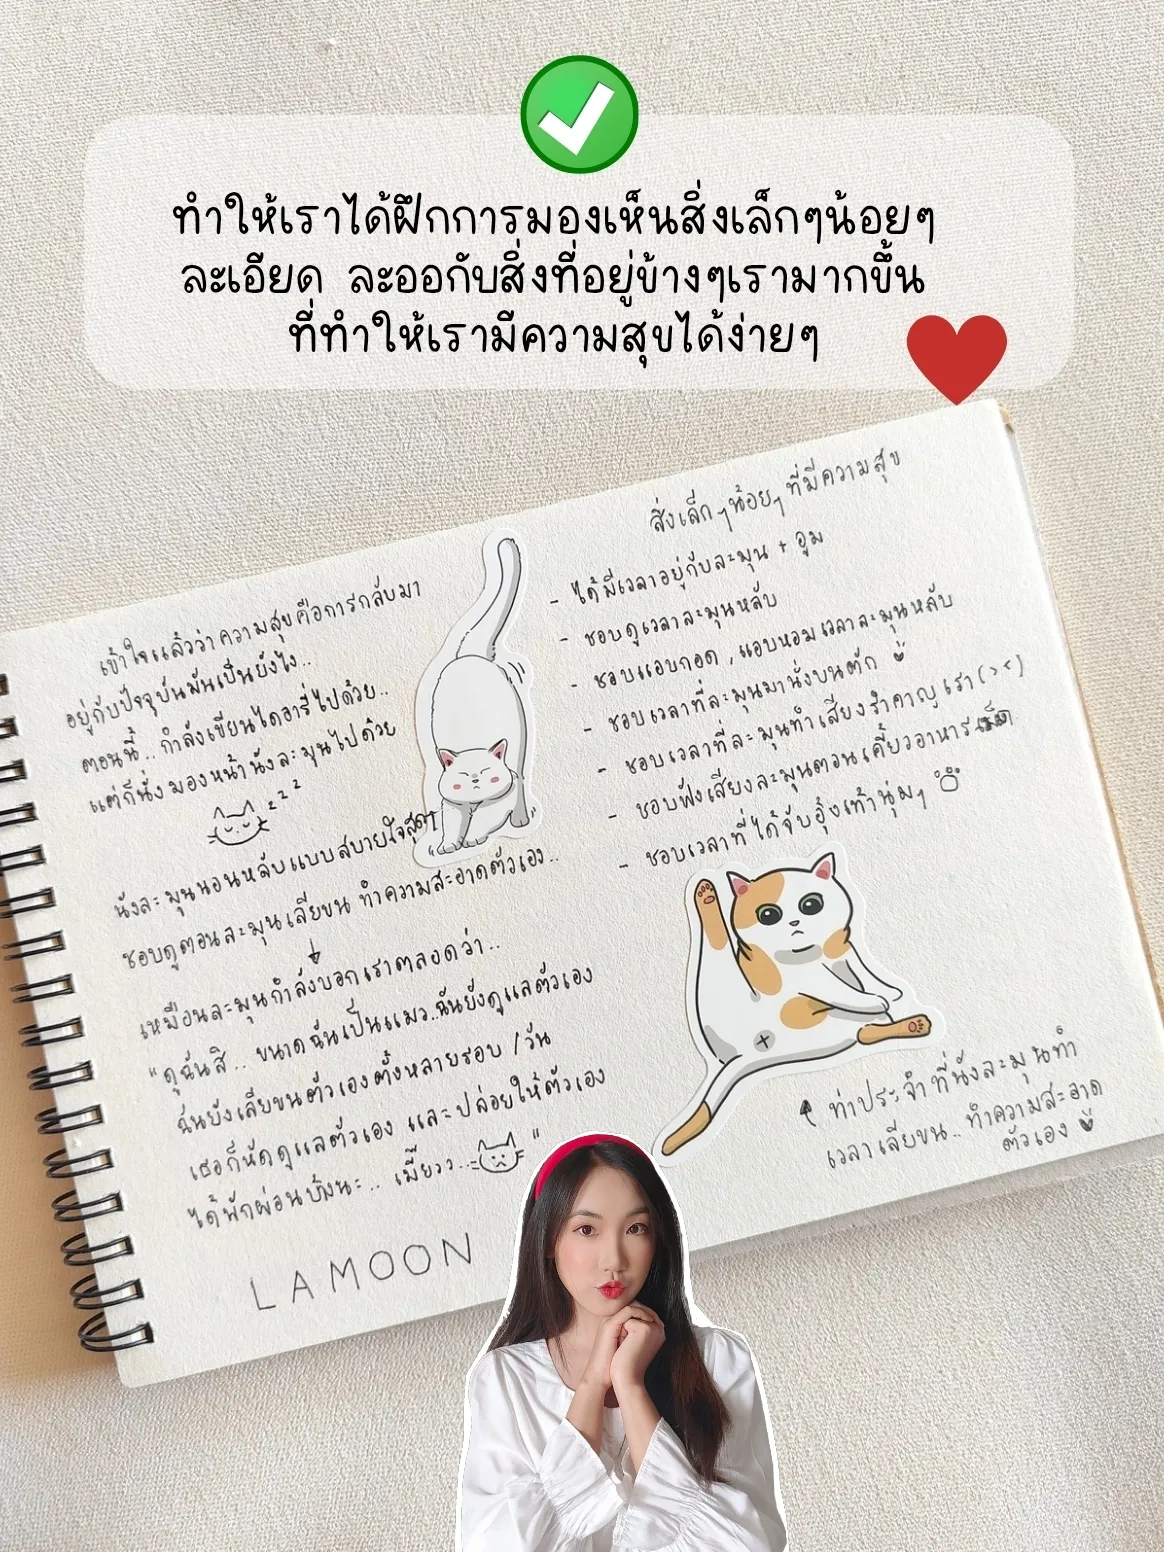 ทำให้เราได้ฝึกการมองเห็นสิ่งเล็กๆน้อยๆ
ละเอียด ละออกับสิ่งที่อยู่ข้างๆเรามากขึ้น
ที่ทำให้เรามีความสุขได้ง่ายๆ
เข้าใจแล้วว่าความสุขคือการกลับมา
อยู่กับปัจจุบันมันเป็นยังไง..
ตอนนี้.. กำลังเขียนไดอารี่ไปด้วย..
แต่ก็นั่งมองหน้านังละมุนไปด้วย
zzz
นังละมุนนอนหลับแบบสบายใจสุดๆ
ชอบดูตอนละมุนเลียขน ทำความสะอาดตัวเอง..
เหมือนละมุนกำลังบอกเราตลอดว่า..
"ดูฉันสิ.. ขนาดฉันเป็นแมว..ฉันยังดูแลตัวเอง
ฉันยังเลียขนตัวเองตั้งหลายรอบ/วัน
เธอก็หัดดูแลตัวเอง และปล่อยให้ตัวเอง
ได้พักผ่อนบ้างนะ.. เมี๊ยวว.. "
LAMOON
สิ่งเล็กๆน้อยๆ ที่มีความสุข
- ได้มีเวลาอยู่กับละมุน + อูม
- ชอบดูเวลาละมุนหลับ
- ชอบแอบกอด, แอบหอมเวลาละมุนหลับ
- ชอบเวลาที่ละมุนมานั่งบนตัก
- ชอบเวลาที่ละมุนทำเสียงรำคาญเรา (><)
- ชอบฟังเสียงละมุนตอนเคี้ยวอาหาร
- ชอบเวลาที่ได้จับอุ้งเท้านุ่มๆ
ท่าประจำที่นังละมุนทำ
เวลาเลียขน.. ทำความสะอาด
ตัวเอง